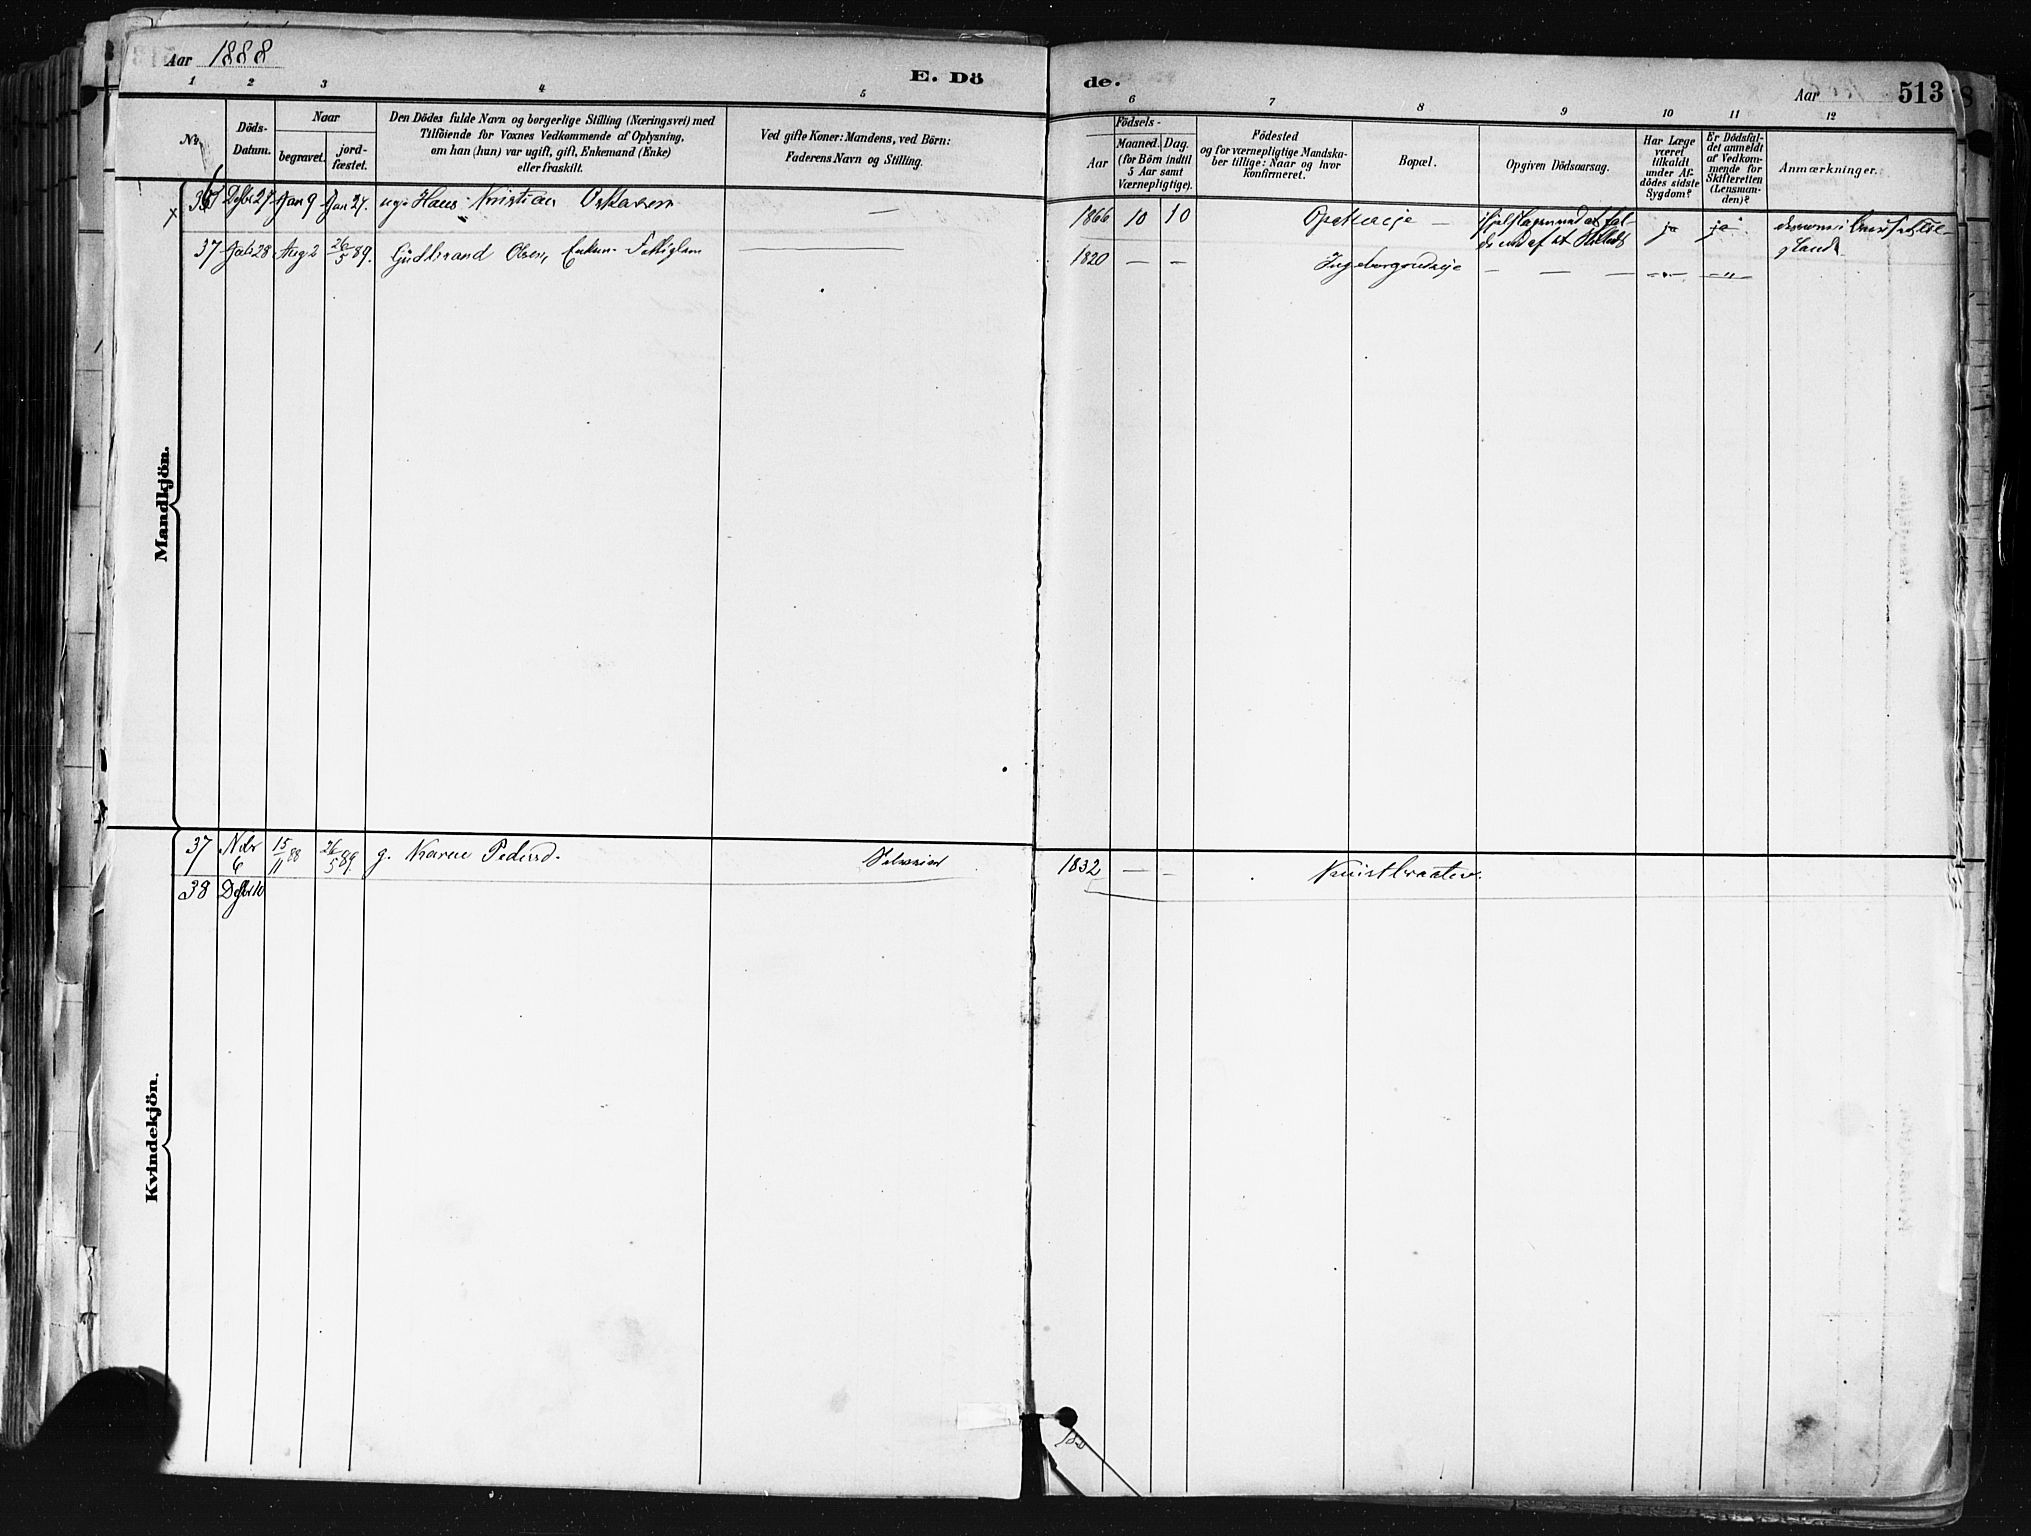 Aar 1888
E. Dö
de.
Aar
513
1 2 3 4 5 6 7 8 9 10 11 12
No.
Döds-
Datum.
Naar
begravet.
jord-
fæstet.
Den Dödes fulde Navn og borgerlige Stilling (Næringsvei) med
Tilföiende for Voxnes Vedkommende af Oplysning,
om han (hun) var ugift, gift, Enkemand (Enke)
eller fraskilt.
Ved gifte Koner: Mandens, ved Börn:
Faderens Navn og Stilling.
Födsels-
Aar
Maaned.
Dag.
(for Börn indtil
5 Aar samt
Værnepligtige).
Födested
og for værnepligtige Mandska-
ber tillige: Naar og hvor
konfirmeret.
Bopæl.
Opgiven Dödsaarsag.
Har Læge
været
tilkaldt
under Af-
dödes sidste
Sygdom?
Er Dödsfal-
det anmeldt
af Vedkom-
mende for
Skifteretten
(Lensman-
den)?
Anmærkninger.
Mandkjön.
36 Dcbr 27 Jan 9 Jan 27. ugi Hans Kristian — 1866 10 10 — ja ja
37 Juli 28 Aug 2 26/5 89. Gudbrand Olsen, — 1820 — — — — —
Kvindekjön.
37 Nobr 6 15/11 88 26/5 89 g. Karen Pedersd. 1832 — —
38 Dcbr 10